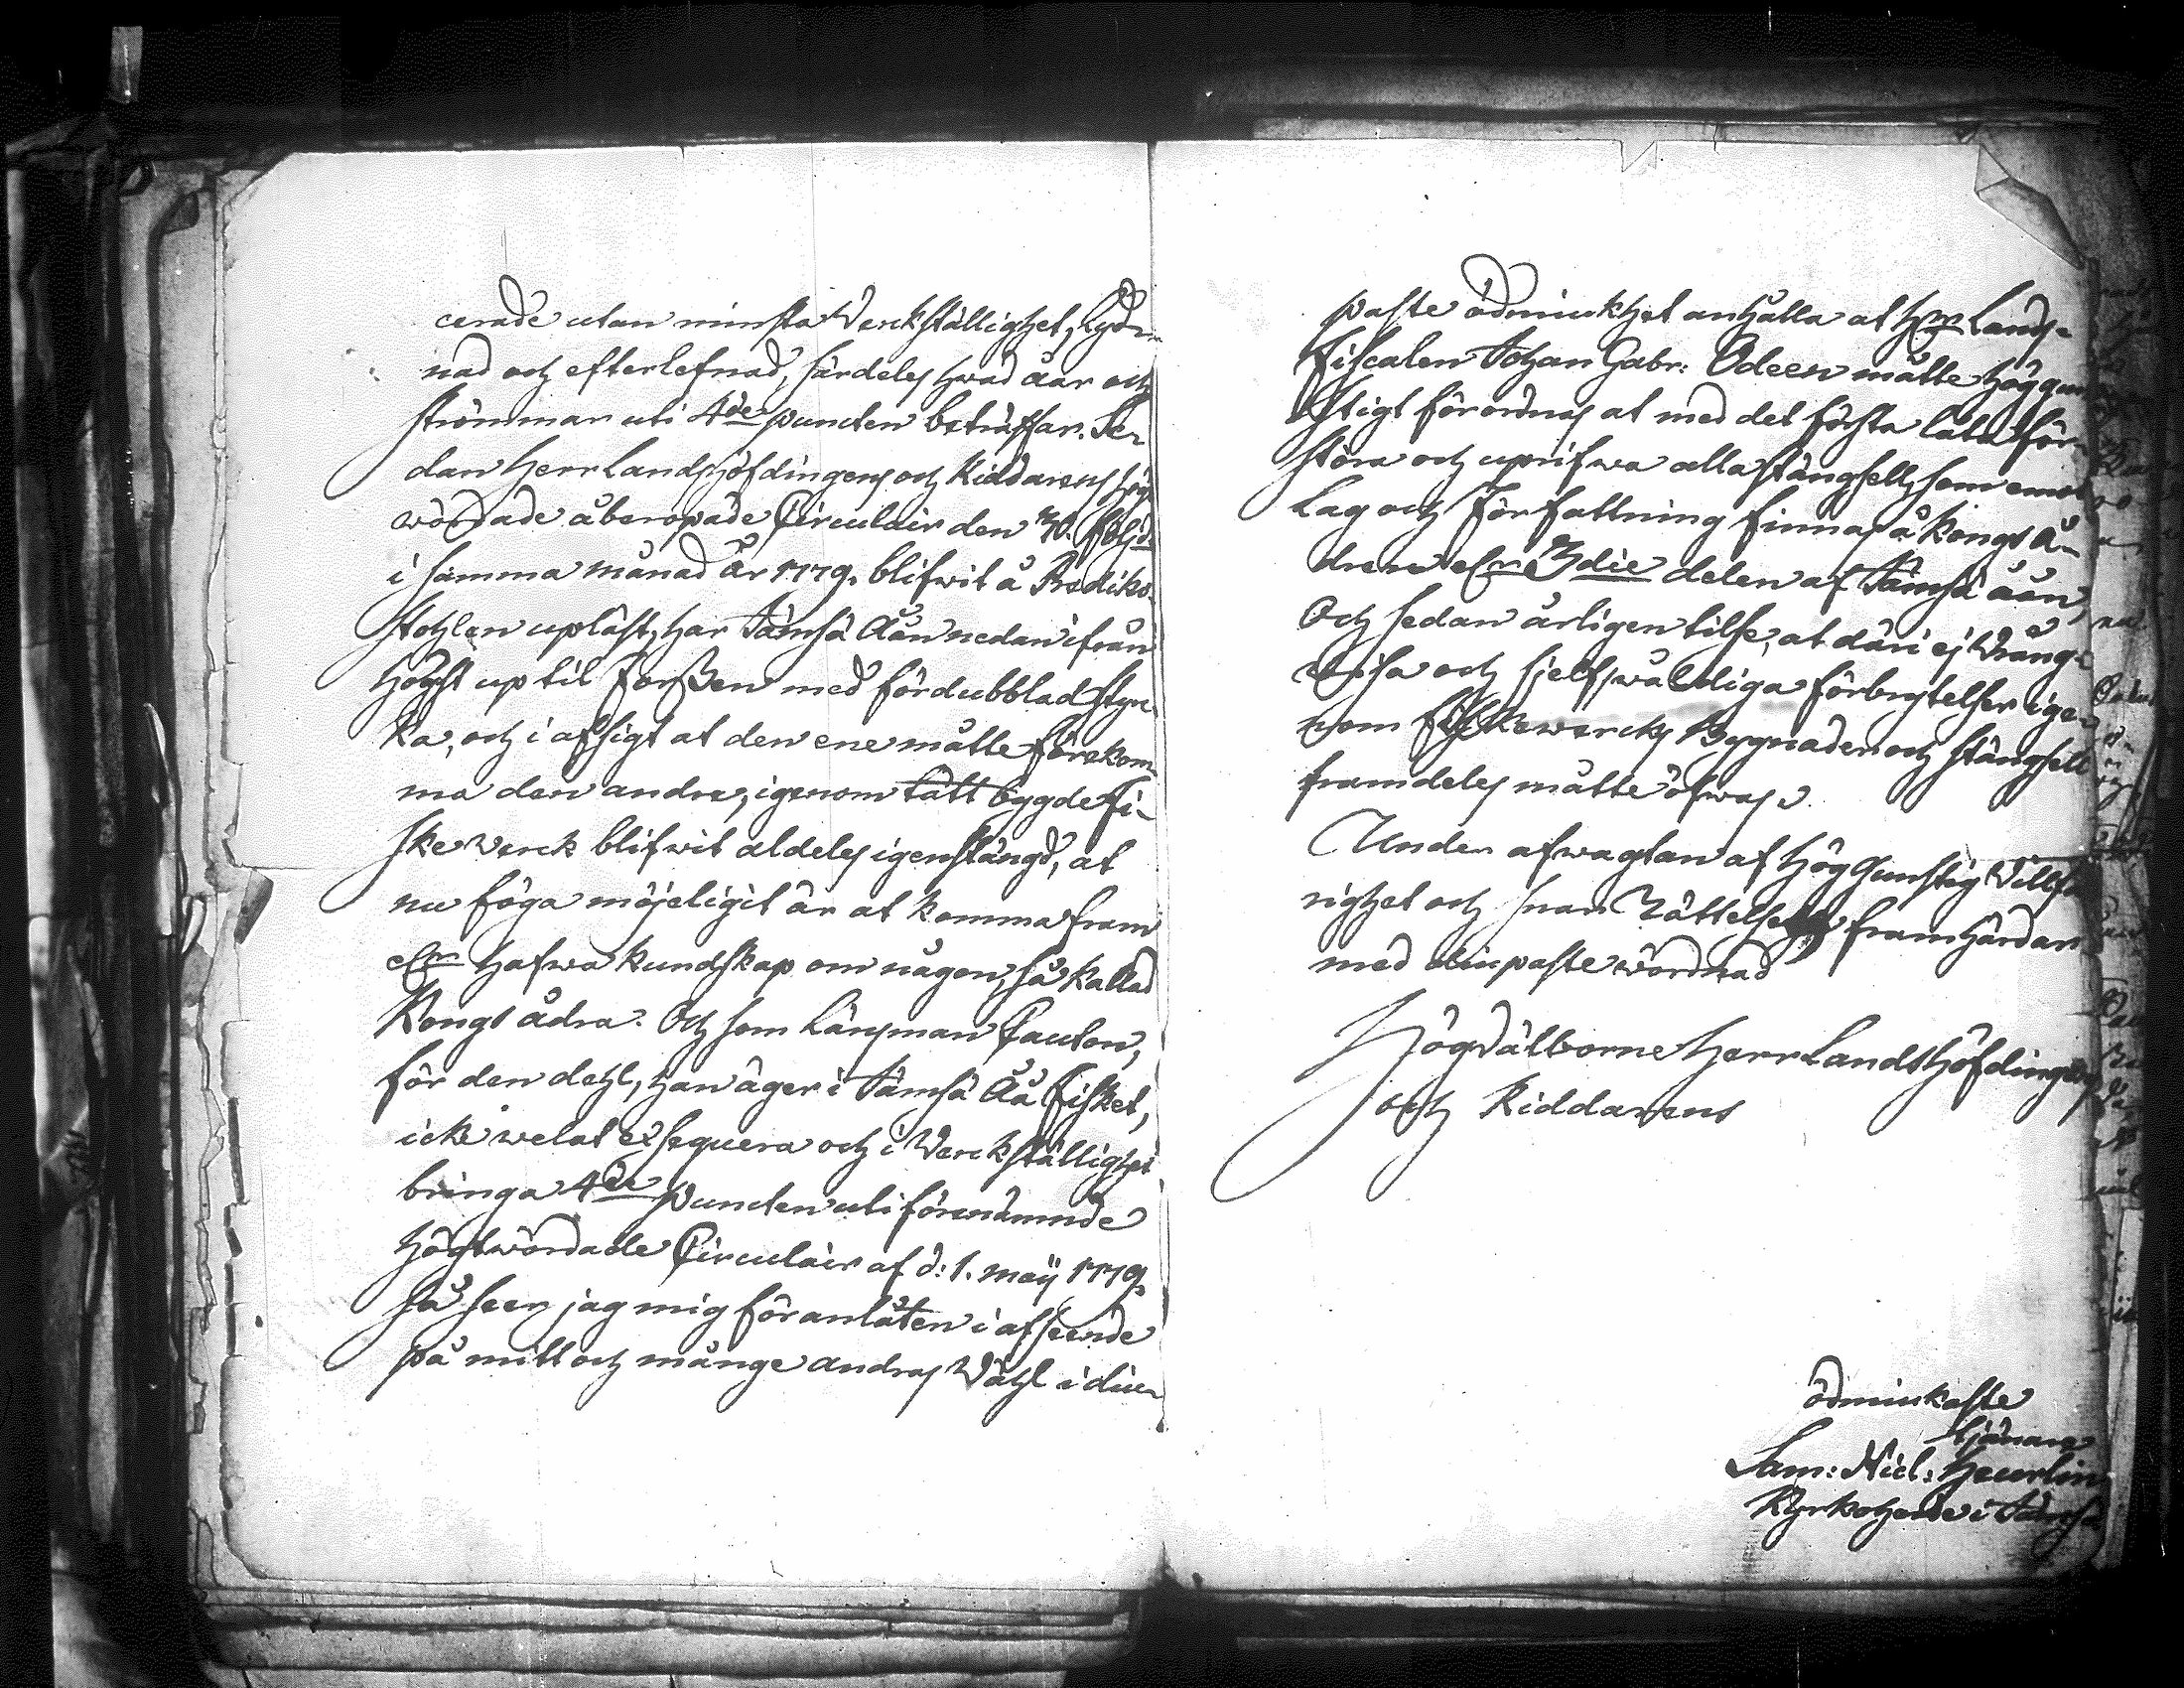 cerade utan minsta Verkställighet, Lyd-
nad och efterlefnad, särdeles hwad åar och
strömmar uti 4de puncten beträffar. Se-
dan Herr Landshöfdingens och Riddarens Hög
wördade åberopade Circulair den 30. följd
i samma månad År 1779. blifwit å Prediko-
stohlen upläst, har Jämsä Åån nedan ifrån
högst up til Forssen med fördubblad styr-
ka, och i afsigt at den ene måtte förekom-
ma den andre, igenom tätt bygde Fi-
ske Verck blifwit aldeles igenstängd, at
nu föga möjeligit är at komma fram
elr hafwa kundskap om någon så kallad
Kongs ådra. Och som Länsman Caulon,
för den dehl, han äger i Jämsä Åå Fisket,
icke welat exsequera och i Verckställighet
bringa 4de Puncten uti förenämnde
Högtwördade Circulair af d: 1. maij 1779.
så seer jag mig föranlåten i afseende
på mitt och månge andras Wähl i diu-
paste ödmiukhet anhålla at Hrr Lands-
Fiscalen Johan Gabr: Odeen måtte höggun
stigt förordnas at med det första låta för-
störa och uprifwa alla stängsell, som emot
Lag och Författning finnas å Kongs Å-
dren elr 3die delen af Jämsä åån,
Och sedan årligen tilse, at däri ej Wräng-
wisa och sjelfswåldiga förbrytelser ige-
nom Fiskewercks Bygnader och stängsell
framdeles måtte öfwas.
Under afwagtan af Höggunstig Villfä
righet och snar Rättelse framhärdar
med diupaste wördnad
Högwälborne Herr Landshöfdingens
och Riddarens
ödmiukaste
tjänare
Sam: Nicl: Heurlin
Kyrkoherde i Jämsä